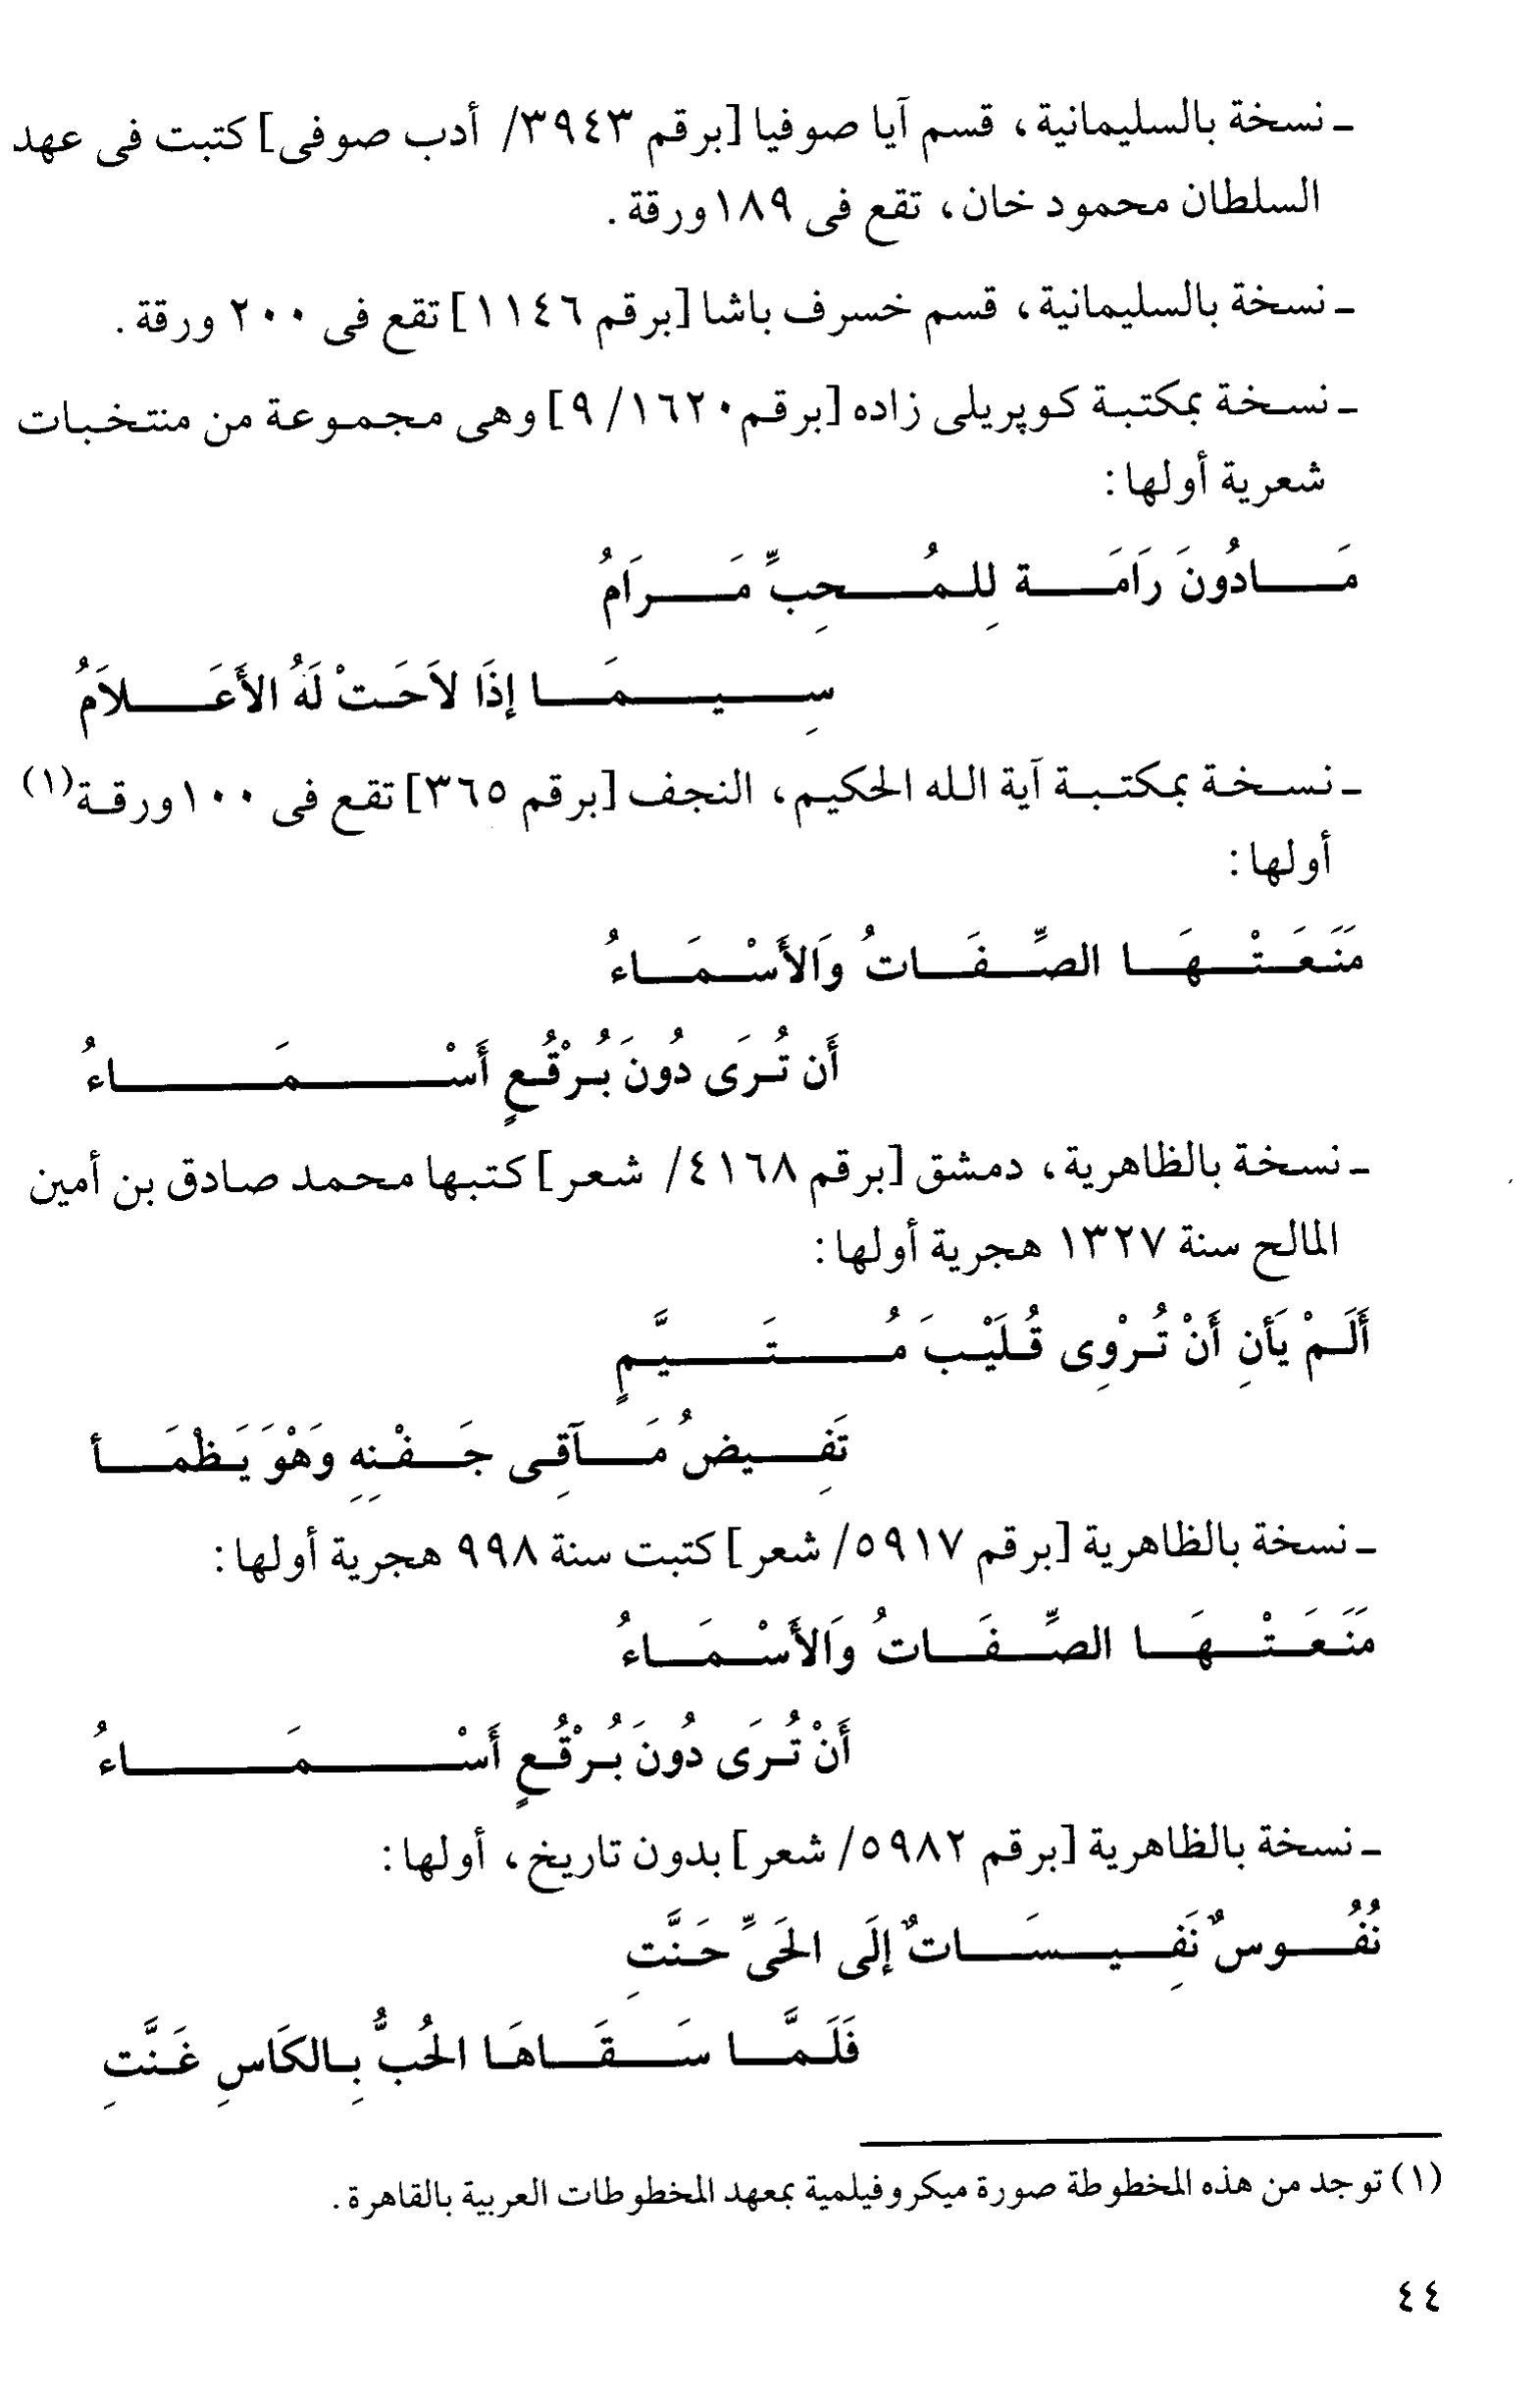 ـ نسخة بالسليمانية، قسم آيا صوفيا [برقم ٣٩٤٣/ أدب صوفى] كتبت فى عهد
السلطان محمود خان، تقع فى ١٨٩ ورقة.
ـ نسخة بالسليمانية، قسم خسرف باشا [برقم ١١٤٦] تقع فى ٢٠٠ ورقة.
ـ نسخة بمكتبة كوپريلى زاده [برقم ١٦٢٠/ ٩] وهى مجموعة من منتخبات
شعرية أولها:
مَادُونَ رَامَة لِلمُحِبِّ مَرَامُ
سِيمَا إذَا لاَحَتْ لَهُ الأَعَلاَمُ
ـ نسخة بمكتبة آية الله الحكيم، النجف [برقم ٣٦٥] تقع فى ١٠٠ ورقة(١)
أولها:
مَنَعَتْهَا الصِّفَاتُ وَالأَسْمَاءُ
أَن تُرَى دُونَ بُرْقُعٍ أَسْمَاءُ
ـ نسخة بالظاهرية، دمشق [برقم ٤١٦٨/ شعر] كتبها محمد صادق بن أمين
المالح سنة ١٣٢٧ هجرية أولها:
أَلَمْ يَأنِ أَنْ تُرْوِى قُلَيْبَ مُتَيَّمٍ
تَفِيضُ مَآقِى جَفْنِهِ وَهْوَ يَظْمَأ
ـ نسخة بالظاهرية [برقم ٥٩١٧/ شعر] كتبت سنة ٩٩٨ هجرية أولها:
مَنَعَتْهَا الصِّفَاتُ وَالأَسْمَاءُ
أَنْ تُرَى دُونَ بُرْقُعٍ أَسْمَاءُ
ـ نسخة بالظاهرية [برقم ٥٩٨٢/ شعر] بدون تاريخ، أولها:
نُفُوسٌ نَفِيسَاتٌ إلَى الحَىِّ حَنَّتِ
فَلَمَّا سَقَاهَا الحُبُّ بِالكَاسِ غَنَّتِ
(١) توجد من هذه المخطوطة صورة ميكروفيلمية بمعهد المخطوطات العربية بالقاهرة.
٤٤